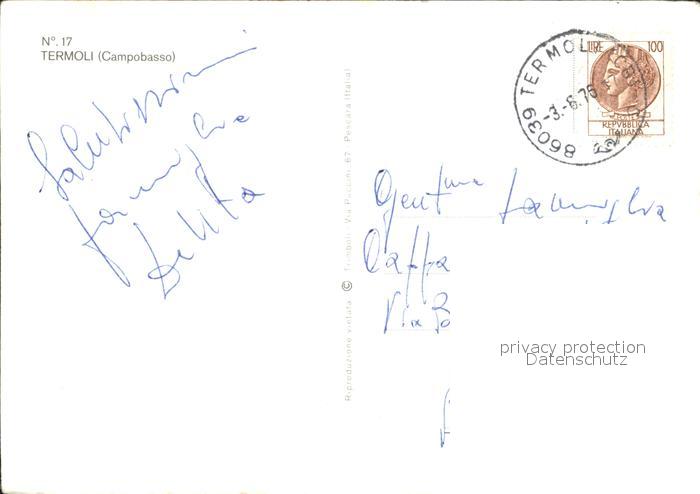 Nº. 17
TERMOLI (Campobasso)
Salutissimi
famiglia
Riproduzione vietata © Trimboli, Via Paccini, 67, Pescara (Italia)
86039 TERMOLI (CB)
-3.-8.76
LIRE 100
REPVBBLICA
ITALIANA
Gent.ma famiglia
Via
privacy protection
Datenschutz